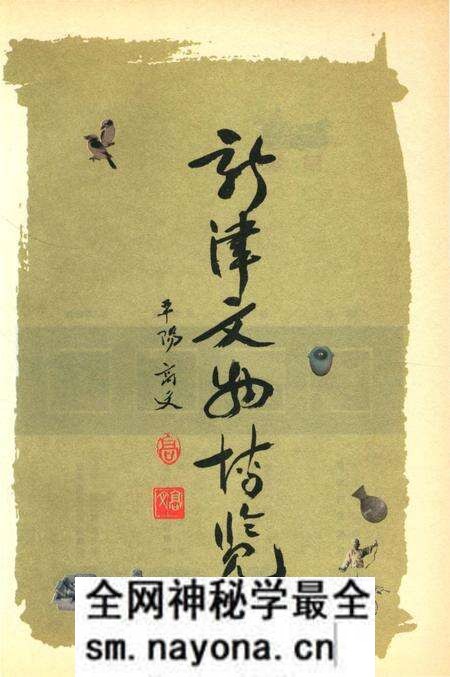 新津文物博览
平阳高文
高
高文
全网神秘学最全
sm.nayona.cn